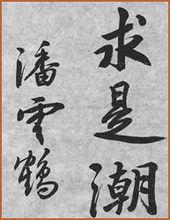 求是潮
潘云鹤